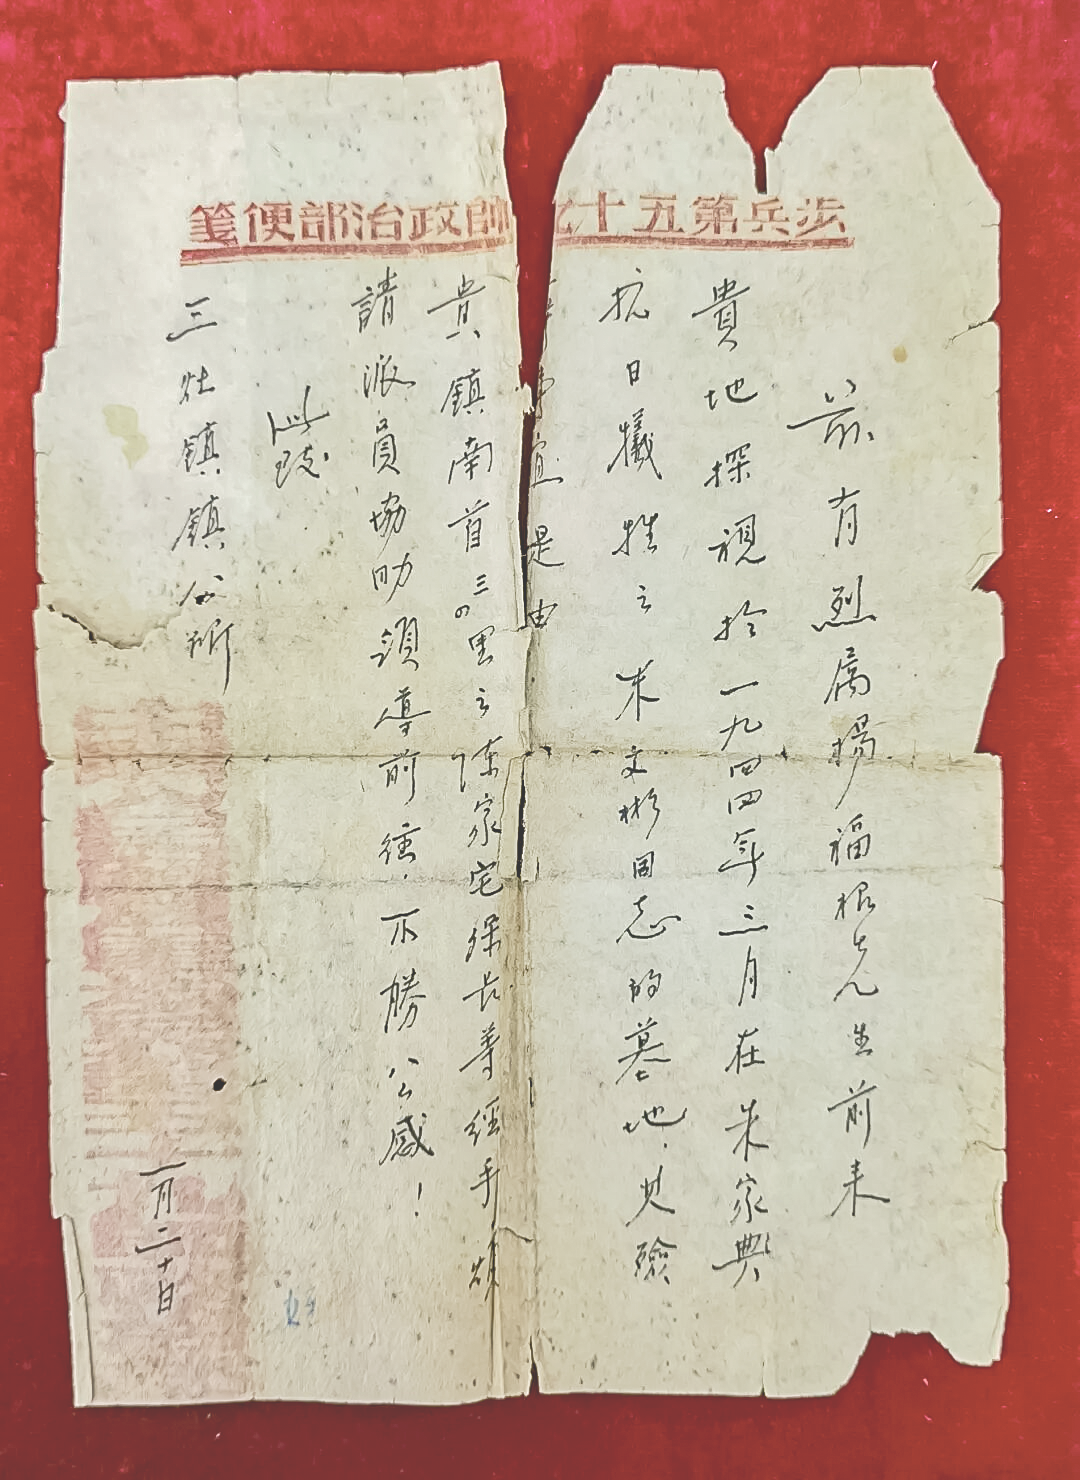 步兵第五十九師政治部便箋
茲有烈属楊福根先生前来
貴地探視於一九四四年三月在朱家典
抗日犧牲之朱文彬同志的墓地，其殮
事宜是由
貴鎮南首三四里之陈家宅保长等經手，煩
請派員協助領導前往，不勝公感！
此致
三灶鎮鎮公所
一月二十日